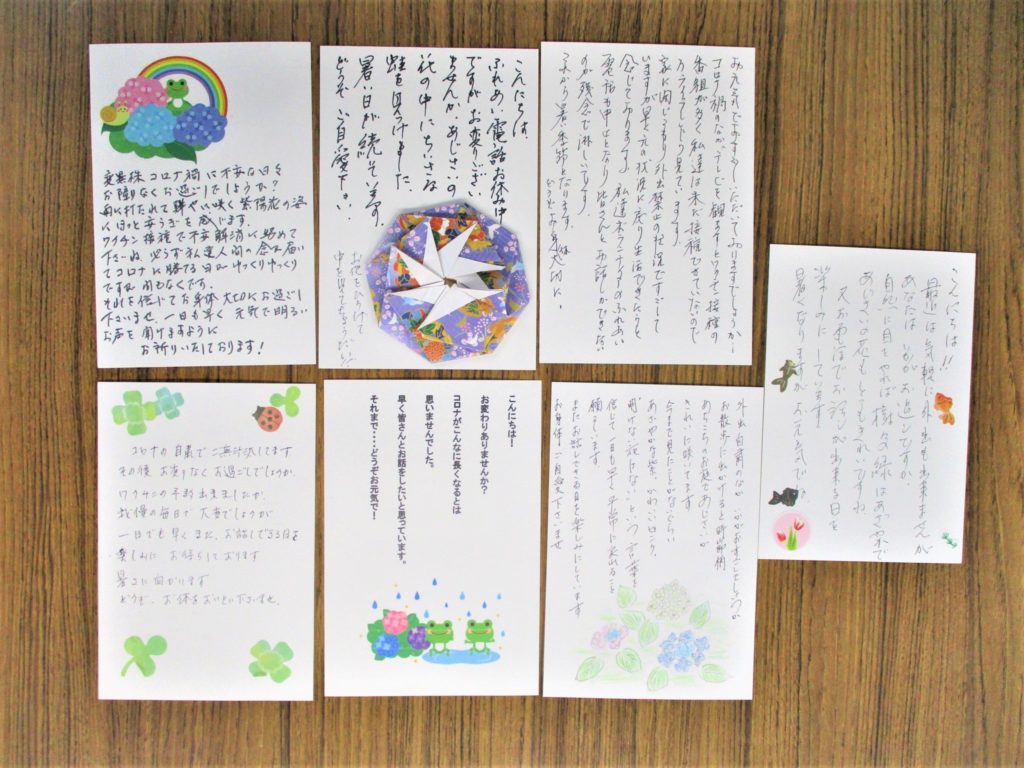 変異株コロナ禍に不安な日々
お障りなくお過しでしょうか?
雨に打たれて鮮やかに咲く紫陽花の姿
にほっと安らぎを感じます。
ワクチン接種で不安解消に努めて
下さいね 必らず私達人間の念は届い
てコロナに勝てる日がゆっくりゆっくり
ですね 間もなくです。
それを信じてお身体大切にお過ごし
下さいませ。一日も早く元気で明るい
お声を聞けますように
お祈りいたしております!
こんにちは。
ふれあい電話お休み中
ですが、お変りござい
ませんか。あじさいの
花の中にちいさな
蛙を見つけました。
暑い日が続そうです。
どうぞご自愛下さい。
お花をひらけて
中を見て
お元気ですか
コロナ禍のなかテレビを観ますとワクチン接種の
番組が多く私達は未だ接種できていないので
見て
家に閉じこもり外出禁止の生活ですごして
いますが早く元の状況に戻り生活できたらと
念じております。私達ボランティアのふれあい
電話も中止となり皆さんとお話しができない
のが残念で淋しいです。
これから暑い季節となります。
こんにちは!!
最近は気軽に外出も出来ませんが
あなたはいかがお過しですか
自然に目をやれば樹々の緑はあざやかで
あじさいの花もとてもきれいですね
又おでんわでお話しが出来る日を
楽しみにしています
暑くなりますが お元気で
コロナの自粛でご無沙汰してます
その後、お変りなくお過ごしでしょうか。
ワクチンの予約出来ましたか。
我慢の毎日で大変でしょうが
一日でも早く また、お話しできる日を
楽しみに お待ちしております
暑さに向かいます
どうぞ、お体をおいといくださいませ。
こんにちは!
お変わりありませんか?
コロナがこんなに長くなるとは
思いませんでした。
早く皆さんとお話をしたいと思っています。
それまで・・・・どうぞお元気で!
外出自粛のなか いかがお過ごしでしょうか
お散歩に出かけると時節柄
あちこちのお庭であじさいが
きれいに咲いています
今まで見たことがないくらい
あざやかな紫、かわいいピンク、
明けない夜はないという言葉を
信じて一日も早く平常に戻れることを
願っています
またお話しできる日を楽しみにしています
お身体ご自愛下さいませ